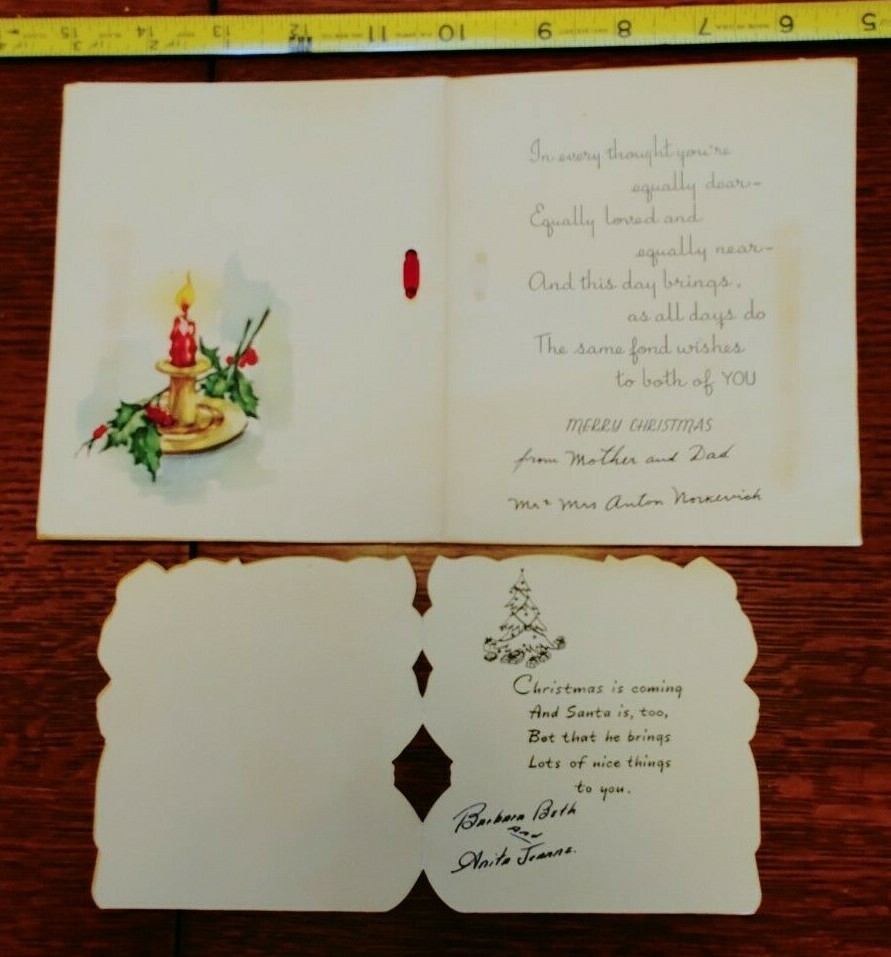 15 14 13 12 11 10 9 8 7 6 5
In every thought you're
equally dear—
Equally loved and
equally near—
And this day brings,
as all days do
The same fond wishes
to both of YOU
MERRY CHRISTMAS
from Mother and Dad
Mr & Mrs Anton Norkevich
Christmas is coming
And Santa is, too,
Bet that he brings
Lots of nice things
to you.
Barbara Beth
and
Anita Jeanne.